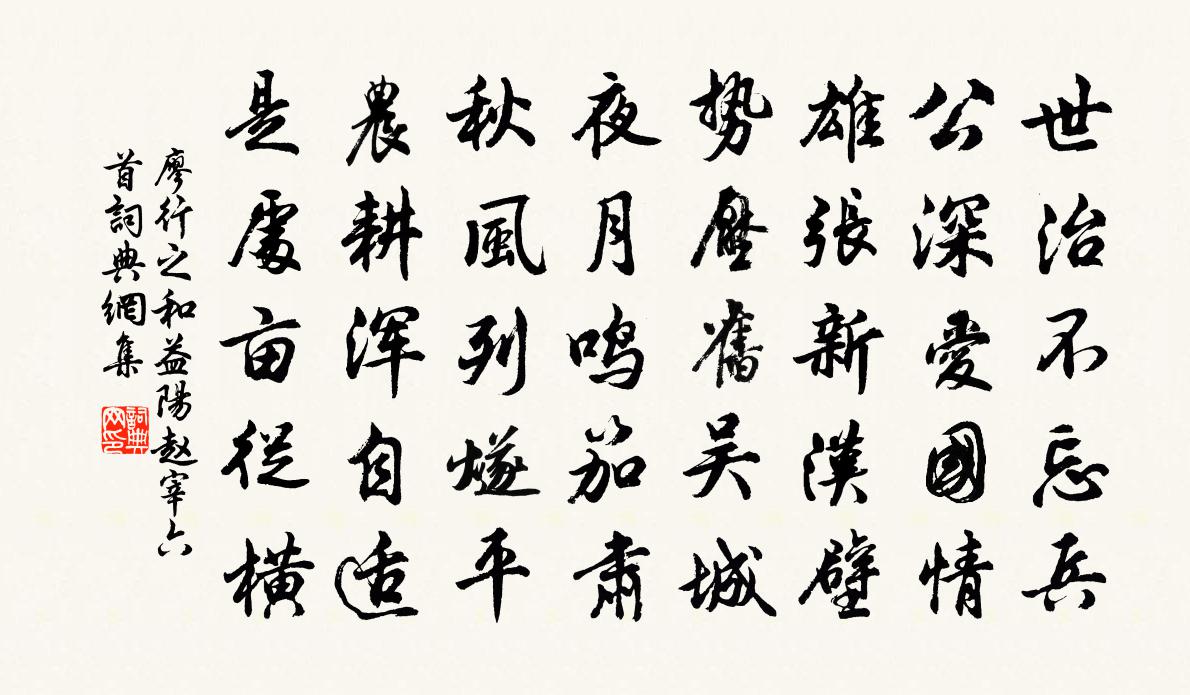 世治不忘兵
公深愛國情
雄張新漢壁
勢壓舊吴城
夜月鸣笳肅
秋風列燧平
農耕浑自适
是處亩従横
廖行之和益陽赵宰六
首詞典網集
詞典网印